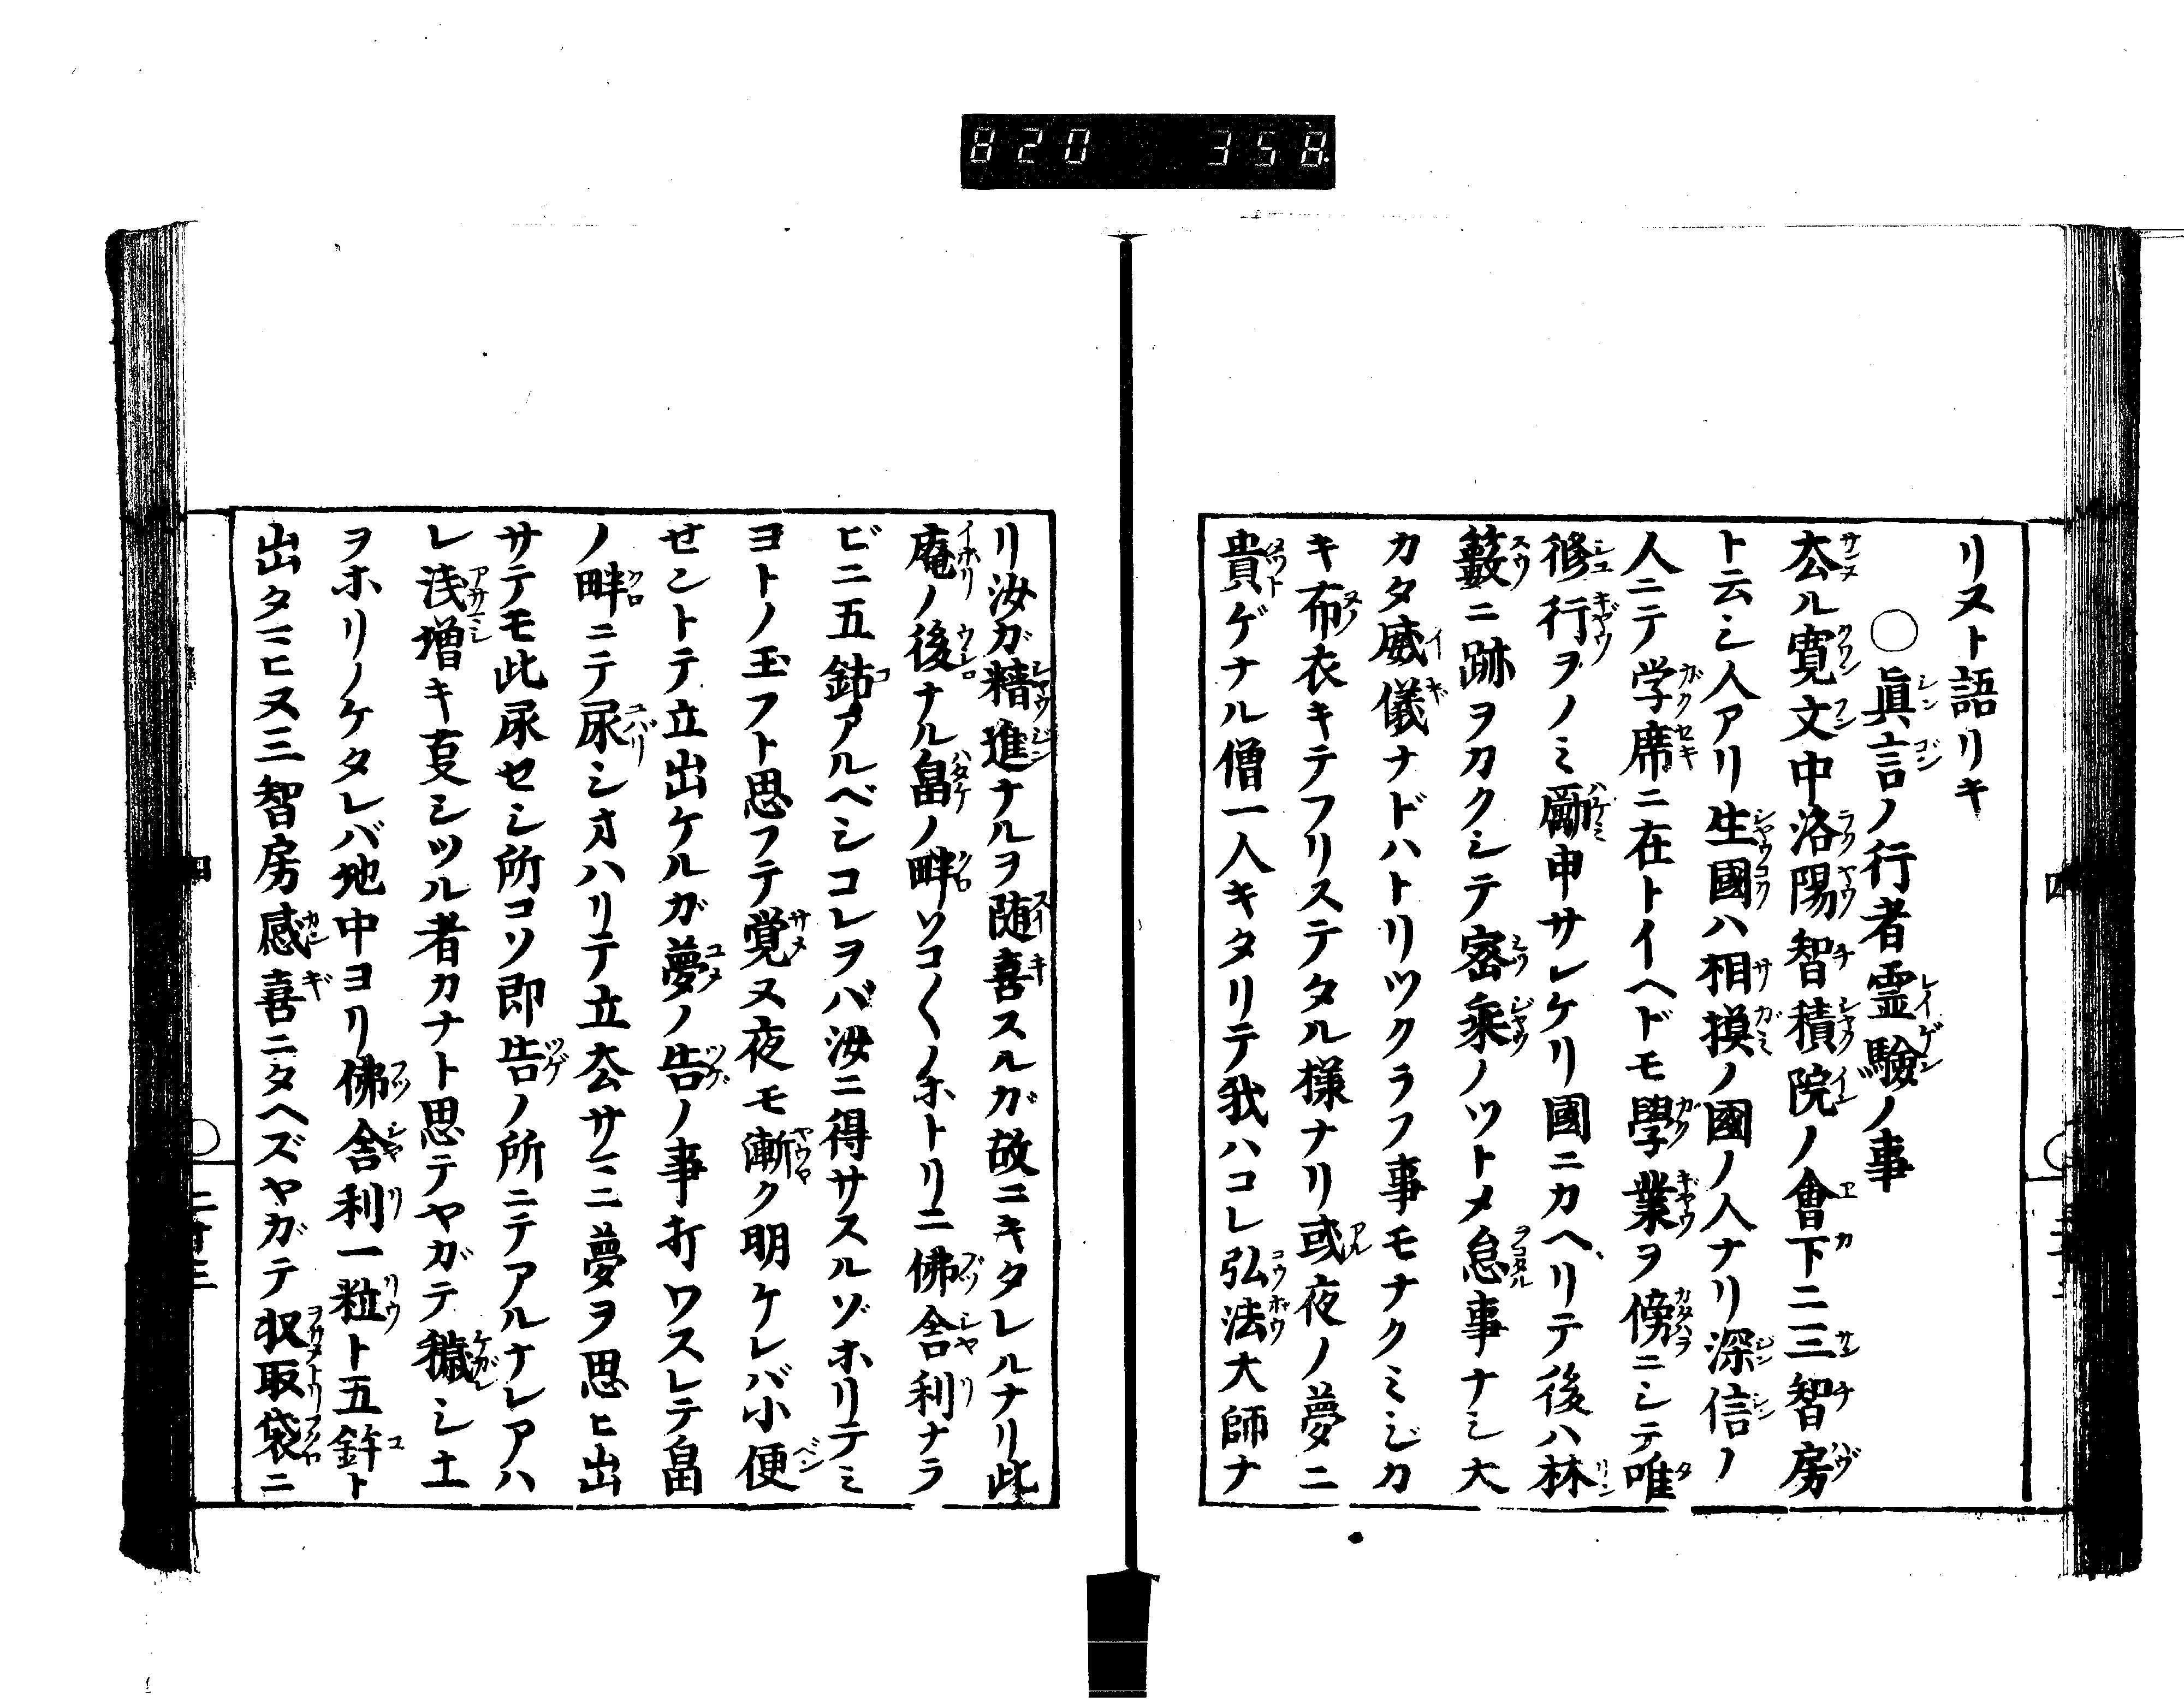 820 358
リスト語リキ
〇眞言ノ行者霊驗ノ事
厺ル寛文中洛陽智積院ノ會下ニ三智房
ト云シ人アリ生國ハ相摸ノ國ノ人ナリ深信ノ
人ニテ学席ニ在トイヘドモ學業ヲ傍ニシテ唯
修行ヲノミ勵申サレケリ國ニカヘリテ後ハ林
藪ニ跡ヲカクシテ密乘ノツトメ怠事ナシ大
カタ威儀ナドハトリツクラフ事モナクミジカ
キ布衣キテフリステタル様ナリ或夜ノ夢ニ
貴ゲナル僧一人キタリテ我ハコレ弘法大師ナ
リ汝ガ精進ナルヲ随喜スルガ故ニキタレルナリ此
庵ノ後ナル畠ノ畔ソコ〱ノホトリニ佛舎利ナラ
ビニ五鈷アルベシコレヲバ汝ニ得サスルゾホリテミ
ヨトノ玉フト思フテ覚ヌ夜モ漸ク明ケレバ小便
せントテ立出ケルガ夢ノ告ノ事打ワスレテ畠
ノ畔ニテ尿シオハリテ立厺サマニ夢ヲ思ヒ出
サテモ此尿セシ所コソ即告ノ所ニテアルナレアハ
レ浅増キ叓シツル者カナト思テヤガテ穢シ土
ヲホリノケタレバ地中ヨリ佛舎利一粒ト五鈷ト
出タマヒヌ三智房感喜ニタヘズヤガテ収取袋ニ
四
二十三